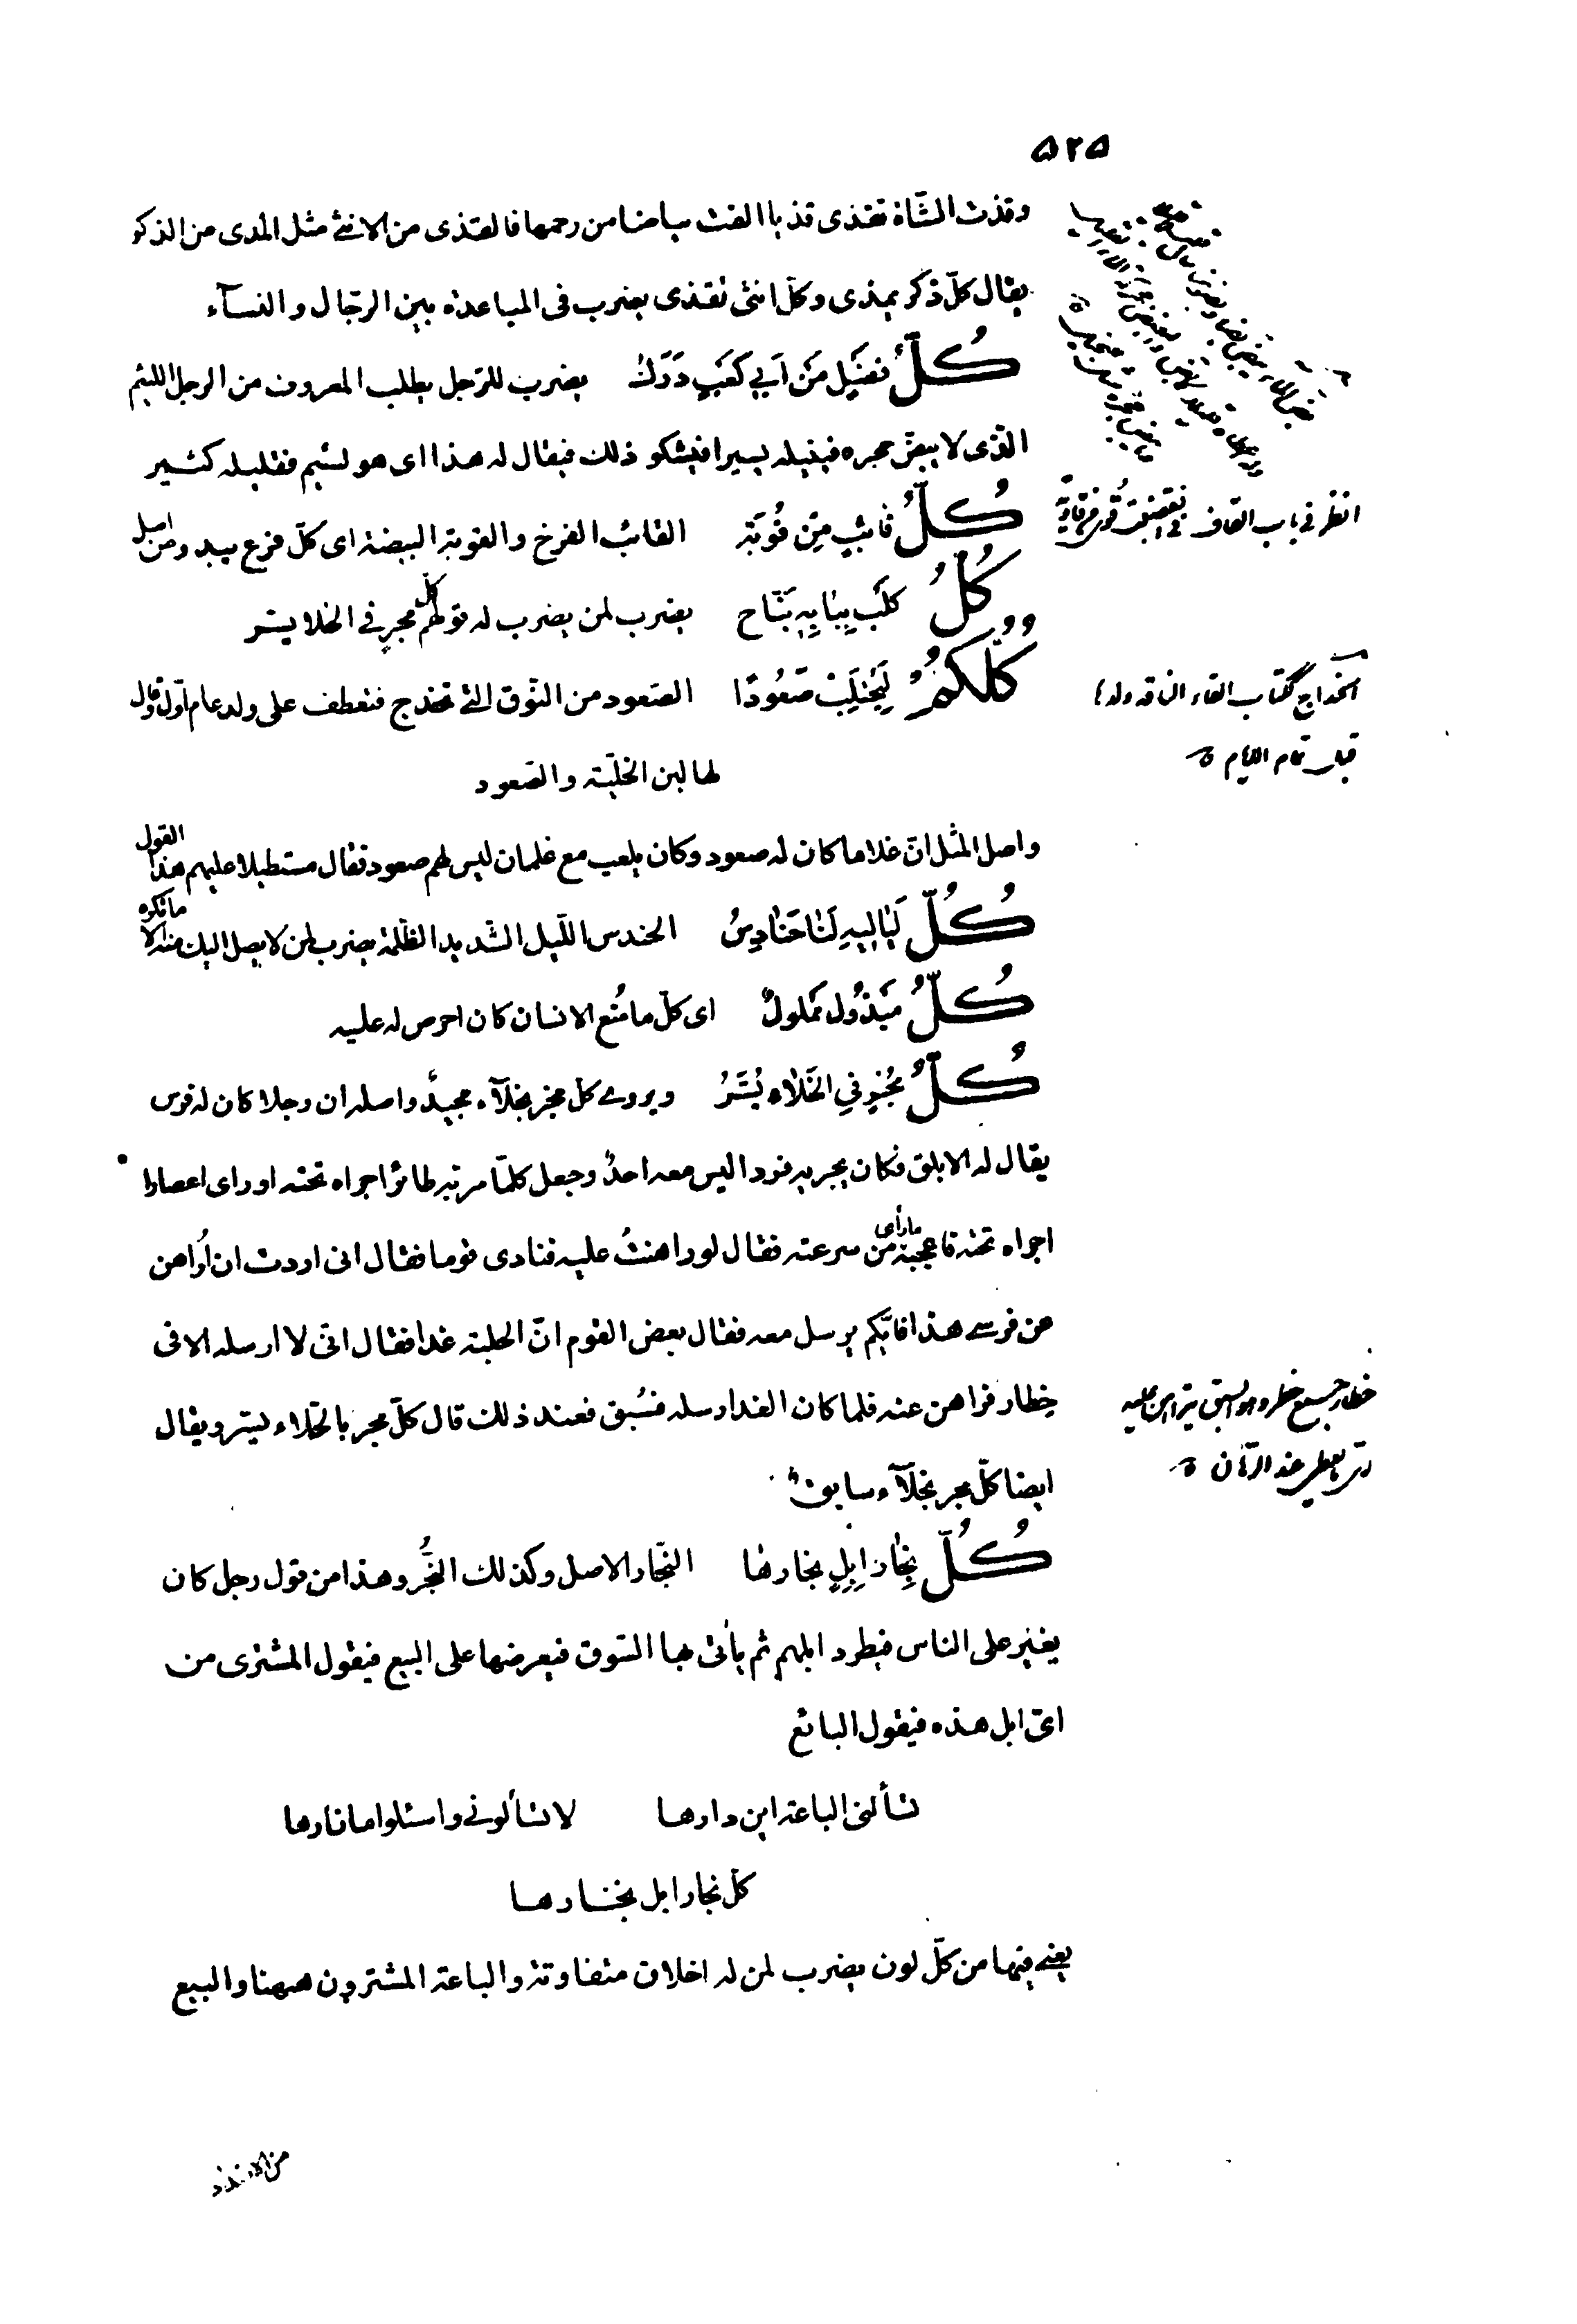 ٥٢٥
وقذت الشّاة تقذى قذيا القت بياضا من رحمها فالقذى من الانثى مثل المذى من الذكر
يقال كلّ ذكر يمذى وكلّ انثى تقذى يضرب فى المباعدة بين الرجال والنسآء
كُلُّ نَضِيلٍ مِنْ اَبِي كَعْبٍ دَرَكٌ يضرب للرّجل يطلب المعروف من الرجل اللئيم
الّذى لا يبضّ حجره فينيله يسيرا فيشكو ذلك فيقال له هذا اى هو لئيم فقليله كثير
كُلُّ قَائِبٍ مِنْ قُوبَةٍ القائب الفرخ والقوبة البيضة اى كلّ فرع يبد ومن اصل
انظر فى باب القاف
كُلُّ كَلْبٍ بِبَابِهِ نَبَّاح يضرب لمن يضرب له قولهم كلّ مجرٍ في الخلا يسر
كُلُّكُمْ لِيَحْتَلِبْ صَعُودًا الصَعود من النّوق الّتى تخدج فتعطف على ولد عام اوّل وقال
الخداج ككتاب القاء الناقه ولدها
قبل تمام الايام
لها لبن الخليّة والصَعود
واصل المثل انّ غلاما كان له صعود وكان يلعب مع غلمان ليس لهم صعود فقال مستطيلا عليهم هذا القول
كُلُّ لَيَالِيهِ لَنَا حَنَادِسُ الحندس اللّيل الشّديد الظّلمة يضرب لمن لا يصل اليك منه الا ما تكره
كُلُّ مَبْذُول مَمْلولٌ اى كلّ ما مُنع الانسان كان احرص له عليه
كُلُّ مُجْرٍ فِي الخَلَاء يُسَرُّ ويروى كلّ مجرٍ بخلآء مجيدٌ واصله ان رجلا كان له فرس
يقال له الابلق فكان يجريه فردا ليس معه احدٌ وجعل كلّما مرّ به طائر اجراه تحته او راى اعصارا
اجراه تحته فاعجبه ما رأى من سرعته فقال لو راهنتُ عليه فنادى قوما فقال انى اردت ان اُراهن
عن فرسى هذا فايّكم يرسل معه فقال بعض القوم انّ الحلبة غدا فقال انّى لا ارسله الا فى
خِطار فراهن عنه فلما كان الغد ارسله فسُبق فعند ذلك قال كلّ مجر بالخلاء ليسر ويقال
خطار جمع خطر وهو السبق يتراهن عليه
ايضا كلّ مجر بخلآء سابقٌ
كُلُّ نِجَارِ اِبِلٍ نِجَارهَا النّجار الاصل وكذلك النَّجْر وهذا من قول رجل كان
يغير على الناس فيطرد ابلهم ثم يأتى بها السّوق فيعرضها على البيع فيقول المشترى من
اىّ ابل هذه فيقول البائع
تسألنى الباعة اين دارها لا تسألونى واسئلوا ما نارها
كلّ نجار ابل نجارها
يعنى فيها من كلّ لون يضرب لمن له اخلاق متفاوتة والباعة المشترون ههنا والبيع
من الاضداد